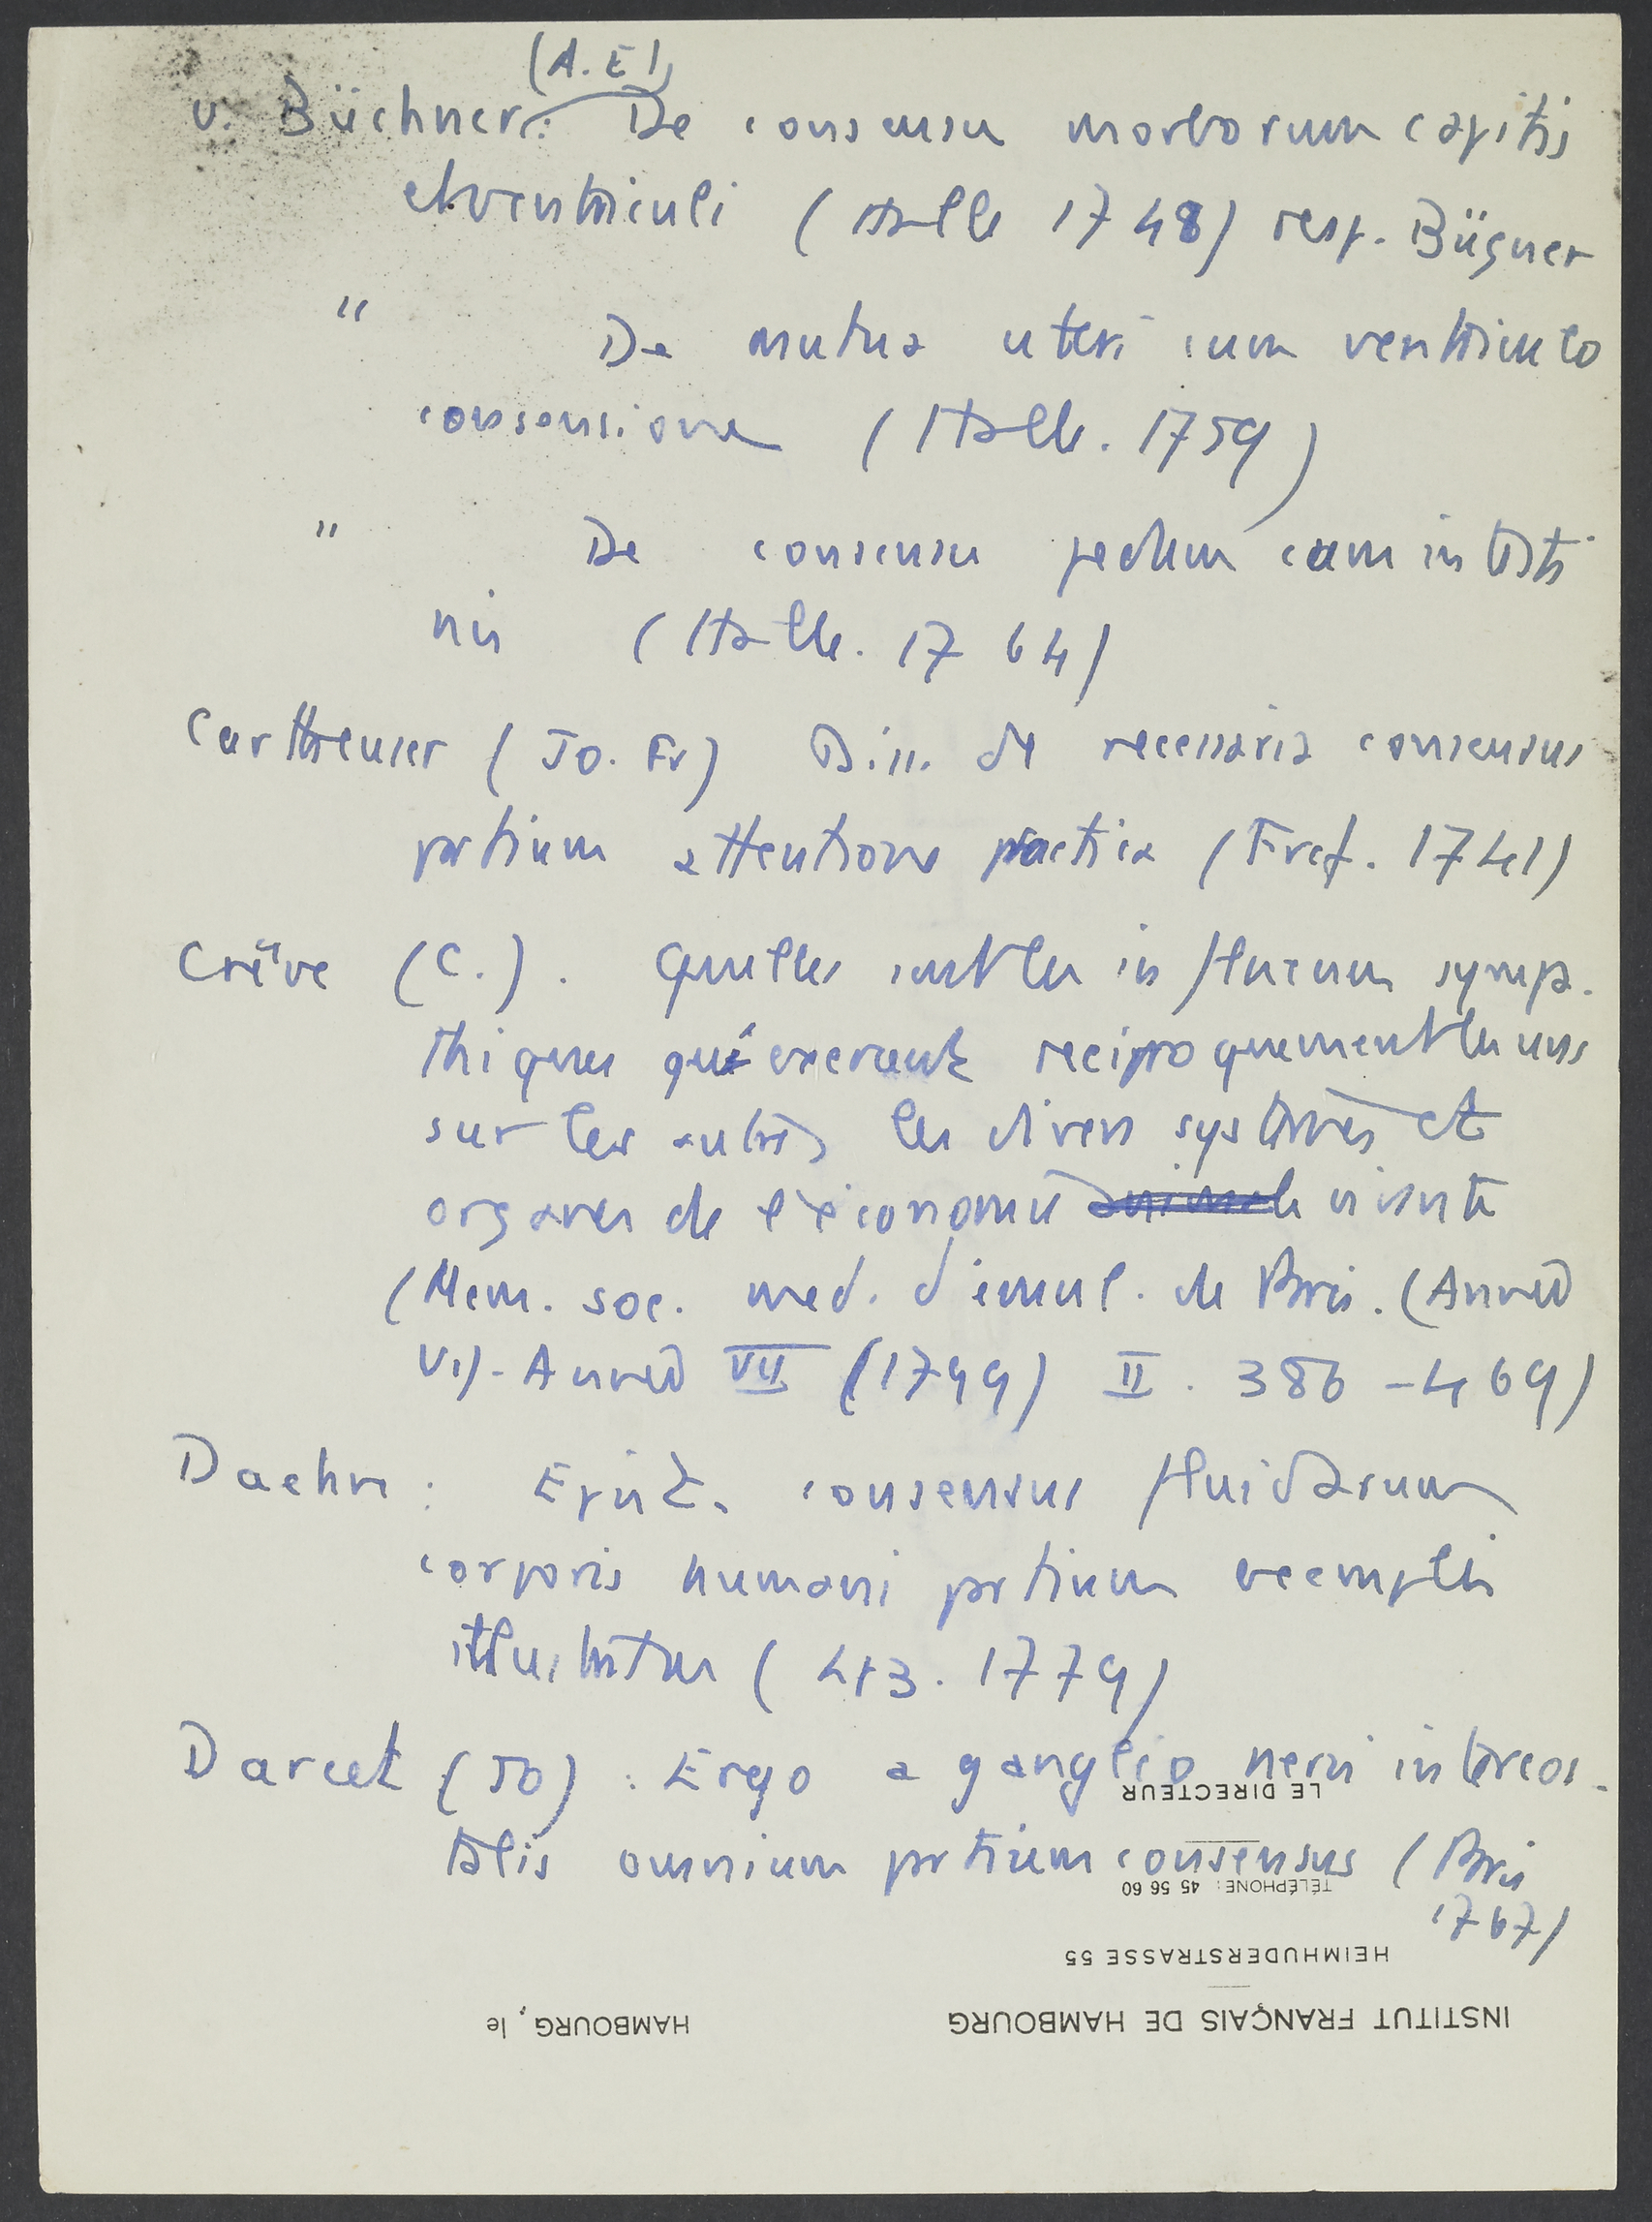 (A.E)
v. Büchner: De consensu morborum capitis
et ventriculi (Halle 1748) resp. Bügner
" De mutua uteri cum ventriculo
consensione (Halle. 1759)
" De consensu pedum cum intesti
nis (Halle. 1764)
Cartheuser (Jo. Fr) Diss. de necessaria consensus
partium attentione practica (Frcf. 1741)
Crève (C.). Quelles sont les influences sympa-
thiques qu'exercent réciproquement les uns
sur les autres les divers systèmes et
organes de l'économie animale vivante
(Mem. soc. med. d'émul. de Paris. (Année
VI)- Année VII (1799) II. 386-469)
Daehne: Epist. consensus fluidarum
corporis humani partium exemplis
illustratur (Lpz. 1779)
Darcet (Jo): Ergo a ganglio nervi intercos-
talis omnium partium consensus (Paris
1767)
LE DIRECTEUR
TÉLÉPHONE: 45 56 60
HEIMHUDERSTRASSE 55
INSTITUT FRANÇAIS DE HAMBOURG
HAMBOURG, le